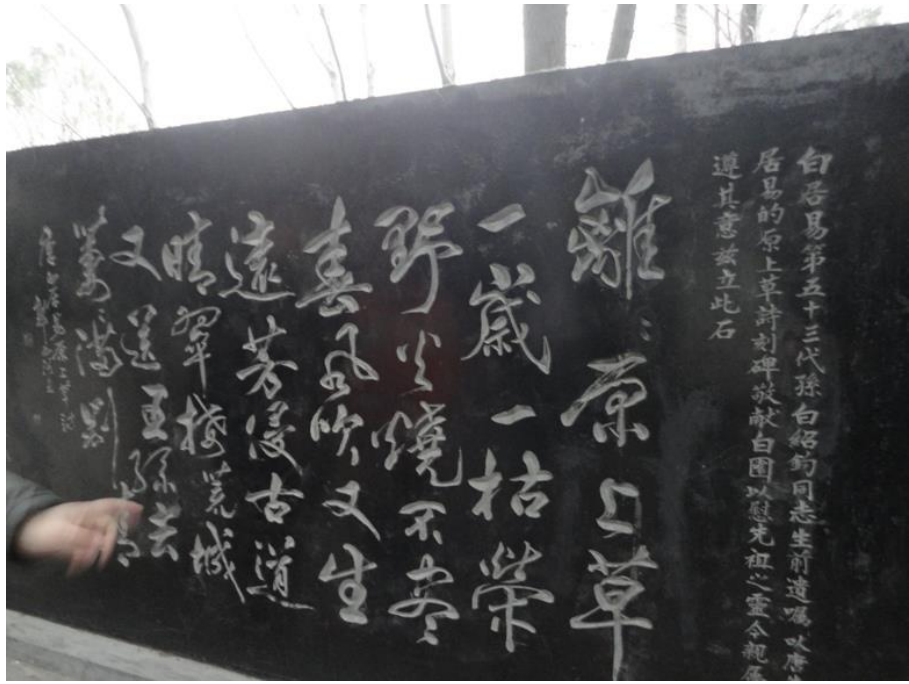 白居易第五十三代孫白紹鈞同志生前遺囑以唐
居易的原上草詩刻碑敬献白園以慰先祖心靈今親屬
遵其意兹立此石
離〻原上草
一歲一枯榮
野火燒不盡
春風吹又生
遠芳侵古道
晴翠接荒城
又送王孫去
萋〻滿別
唐白居易原上草詩